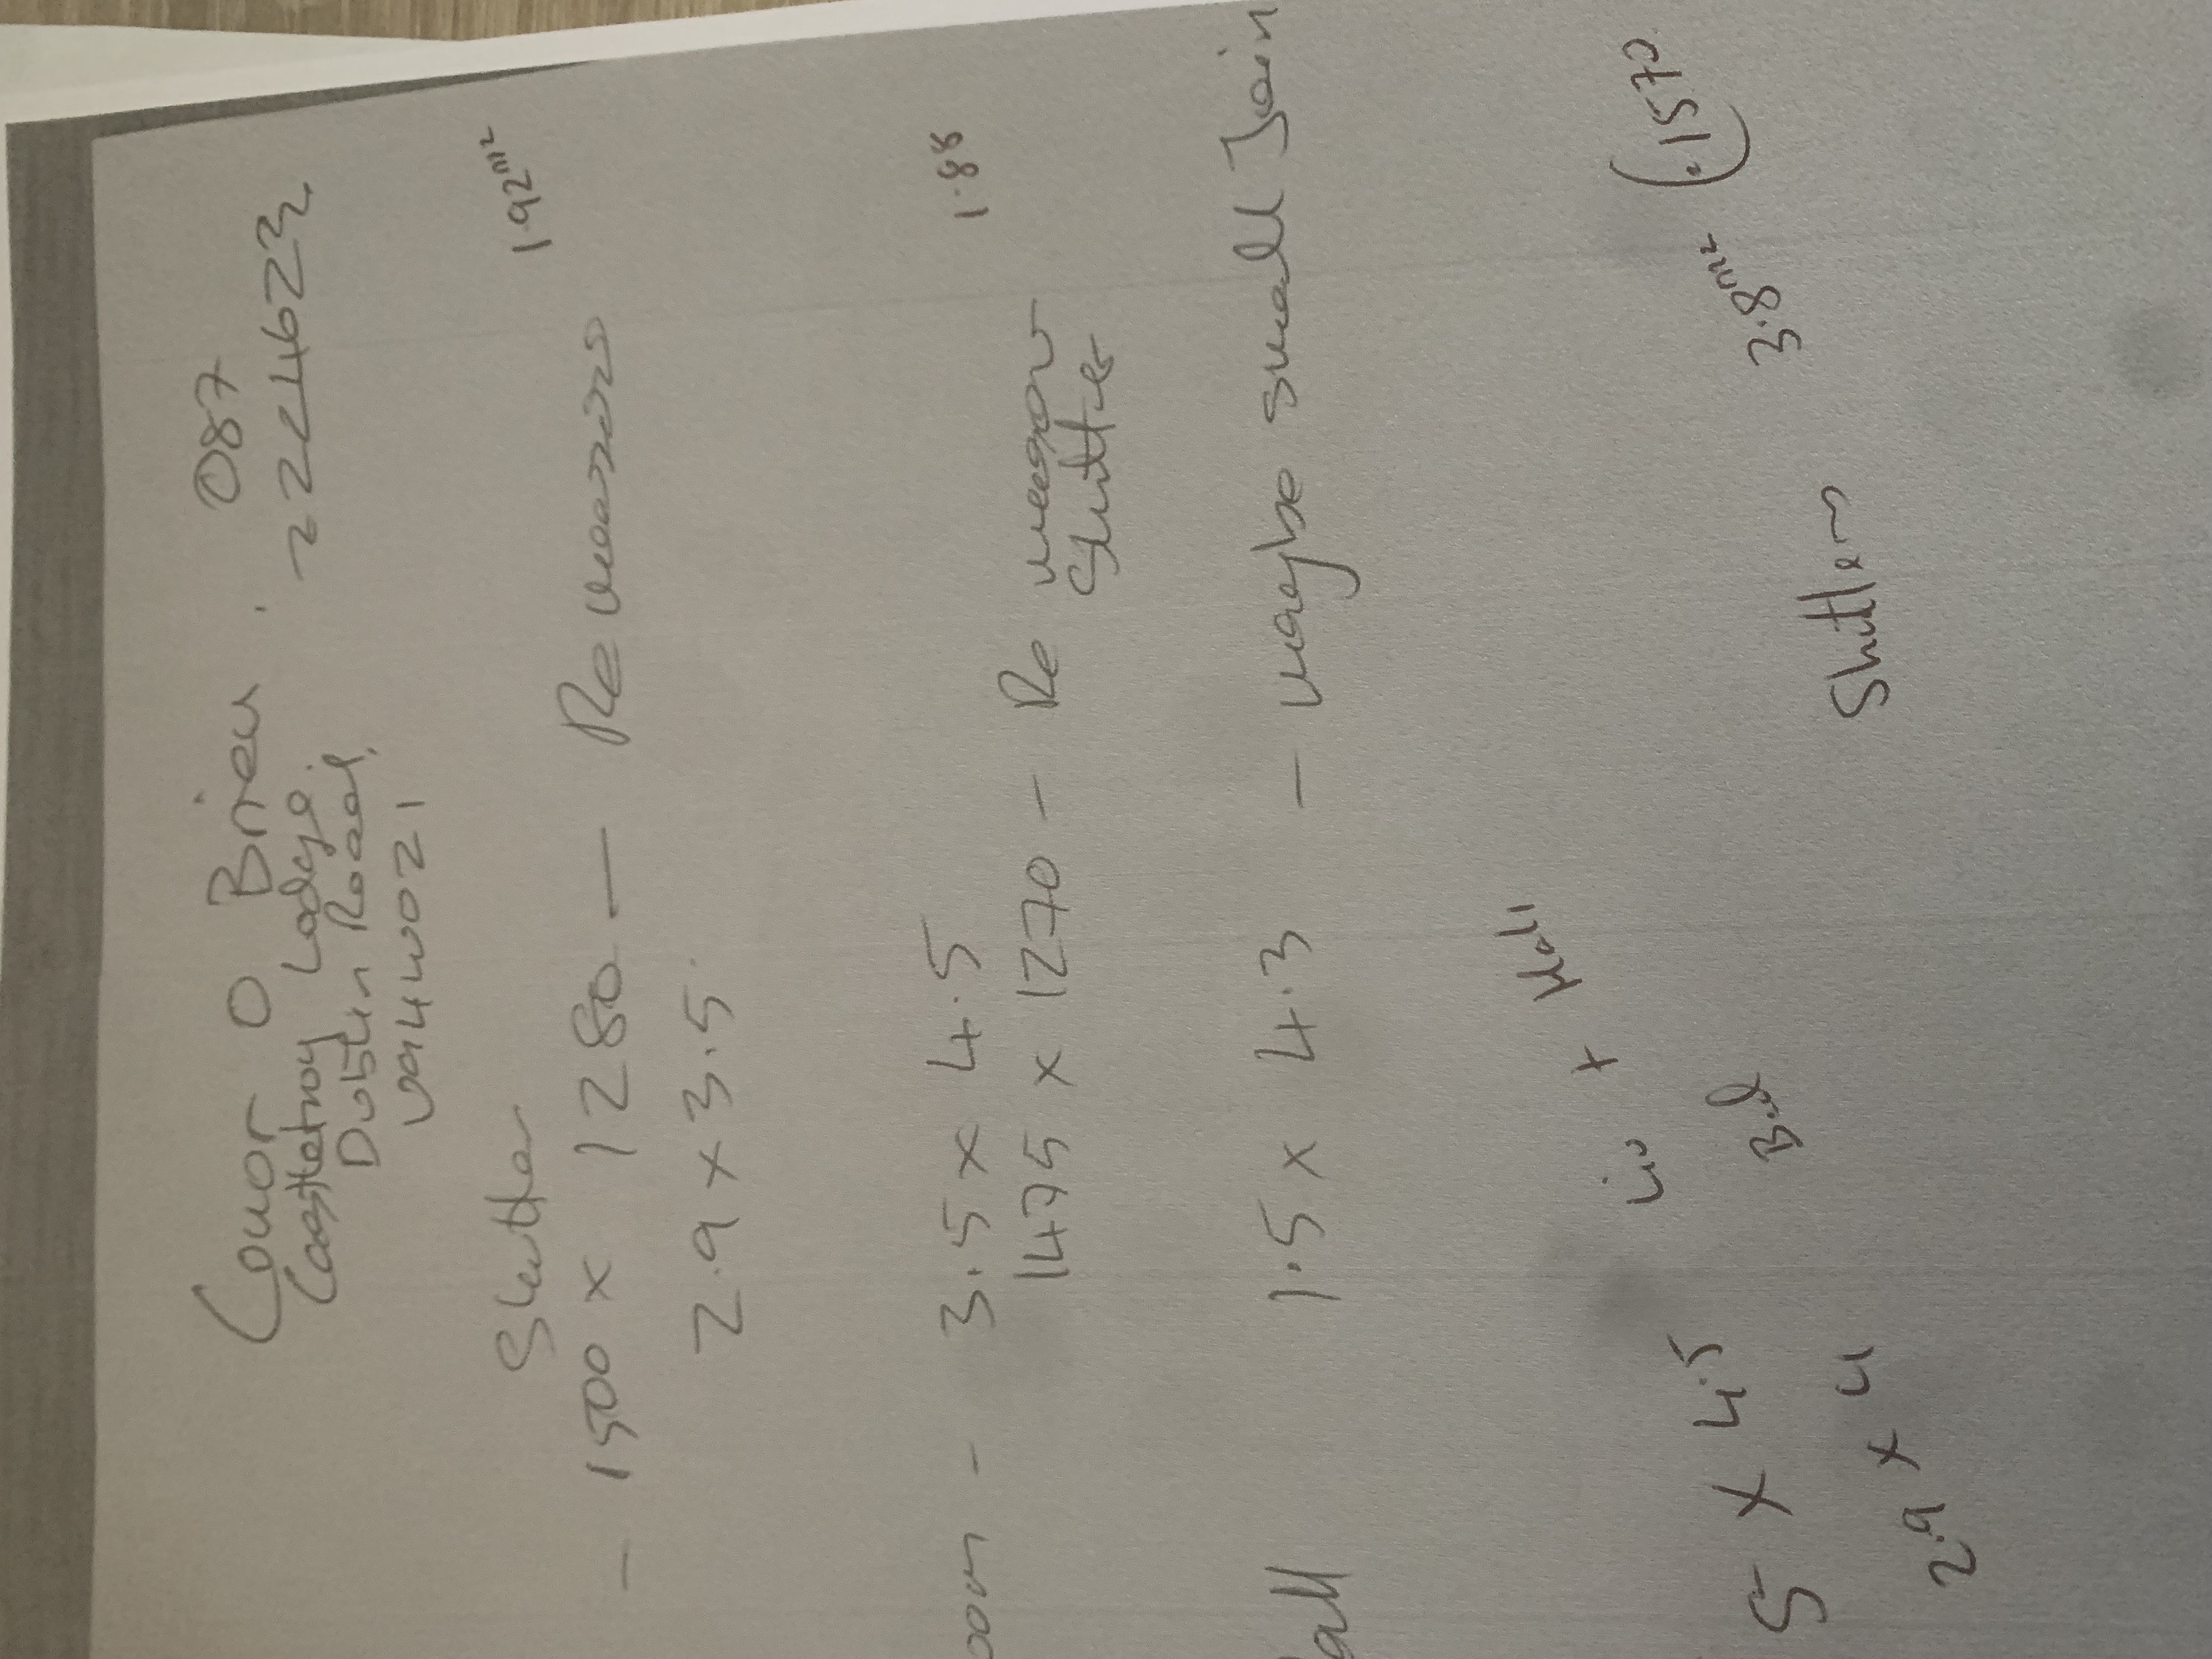 Conor O Brien . 087
Castletroy Lodge. 2224623
Dublin Road,
V94W021
Shutter 1.92m²
- 1500 x 1280 — Re measure
2.9 x 3.5.
oom - 3.5 x 4.5 1.88
1475 x 1270 - Re measure
Shutter
all 1.5 x 4.3 - maybe small Join
Liv + Hall
5 x 4.5 Bed 3.8m² (.1570
2.9 x 4 Shutters